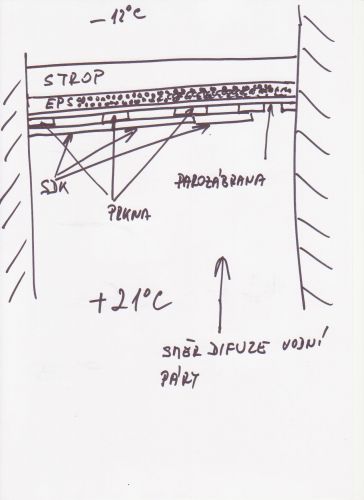 -12°C
STROP
EPS
SDK
PAROZÁBRANA
PRKNA
+21°C
SMĚR DIFUZE VODNÍ
PÁRY